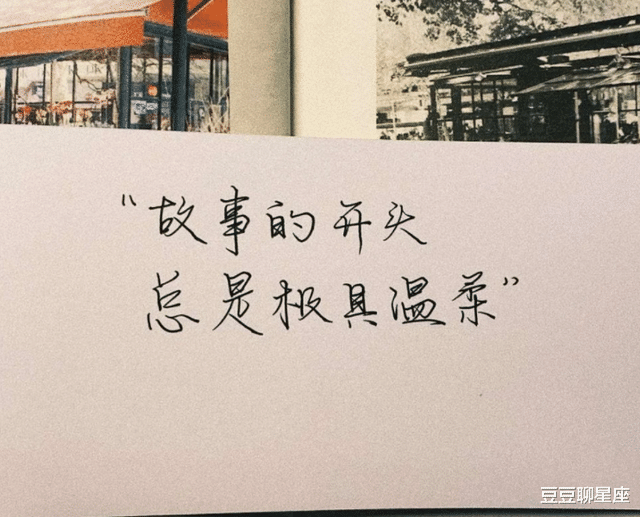 “故事的开头
总是极具温柔”
豆豆聊星座